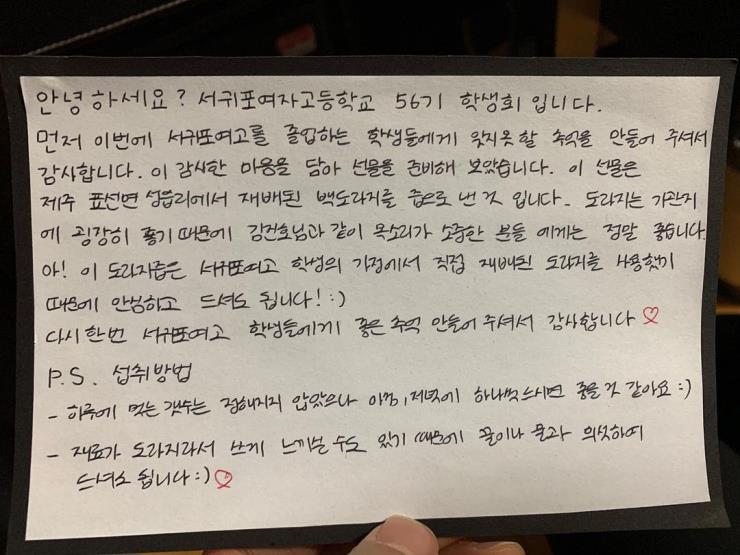 안녕하세요? 서귀포여자고등학교 56기 학생회 입니다.
먼저 이번에 서귀포여고를 졸업하는 학생들에게 잊지못할 추억을 만들어 주셔서
감사합니다. 이 감사한 마음을 담아 선물을 준비해 보았습니다. 이 선물은
제주 표선면 성읍리에서 재배된 백도라지를 즙으로 낸 것 입니다. 도라지는 기관지
에 굉장히 좋기 때문에 김건호님과 같이 목소리가 소중한 분들 에게는 정말 좋습니다.
아! 이 도라지즙은 서귀포여고 학생의 가정에서 직접 재배된 도라지를 사용했기
때문에 안심하고 드셔도 됩니다! :)
다시한번 서귀포여고 학생들에게 좋은 추억 만들어 주셔서 감사합니다 ♡
P.S. 섭취방법
- 하루에 먹는 갯수는 정해지지 않았으나 아침, 저녁에 하나씩 드시면 좋을 것 같아요 :)
- 재료가 도라지라서 쓰게 느끼실 수도 있기 때문에 꿀이나 물과 희석하여
드셔도 됩니다 :) ♡